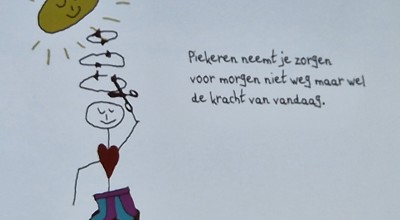 Piekeren neemt je zorgen
voor morgen niet weg maar wel
de kracht van vandaag.